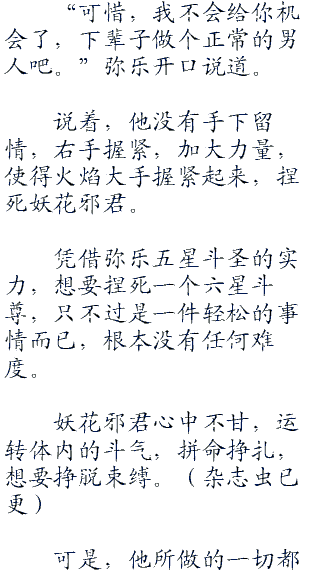 “可惜，我不会给你机
会了，下辈子做个正常的男
人吧。”弥乐开口说道。
说着，他没有手下留
情，右手握紧，加大力量，
使得火焰大手握紧起来，捏
死妖花邪君。
凭借弥乐五星斗圣的实
力，想要捏死一个六星斗
尊，只不过是一件轻松的事
情而已，根本没有任何难
度。
妖花邪君心中不甘，运
转体内的斗气，拼命挣扎，
想要挣脱束缚。（杂志虫已
更）
可是，他所做的一切都